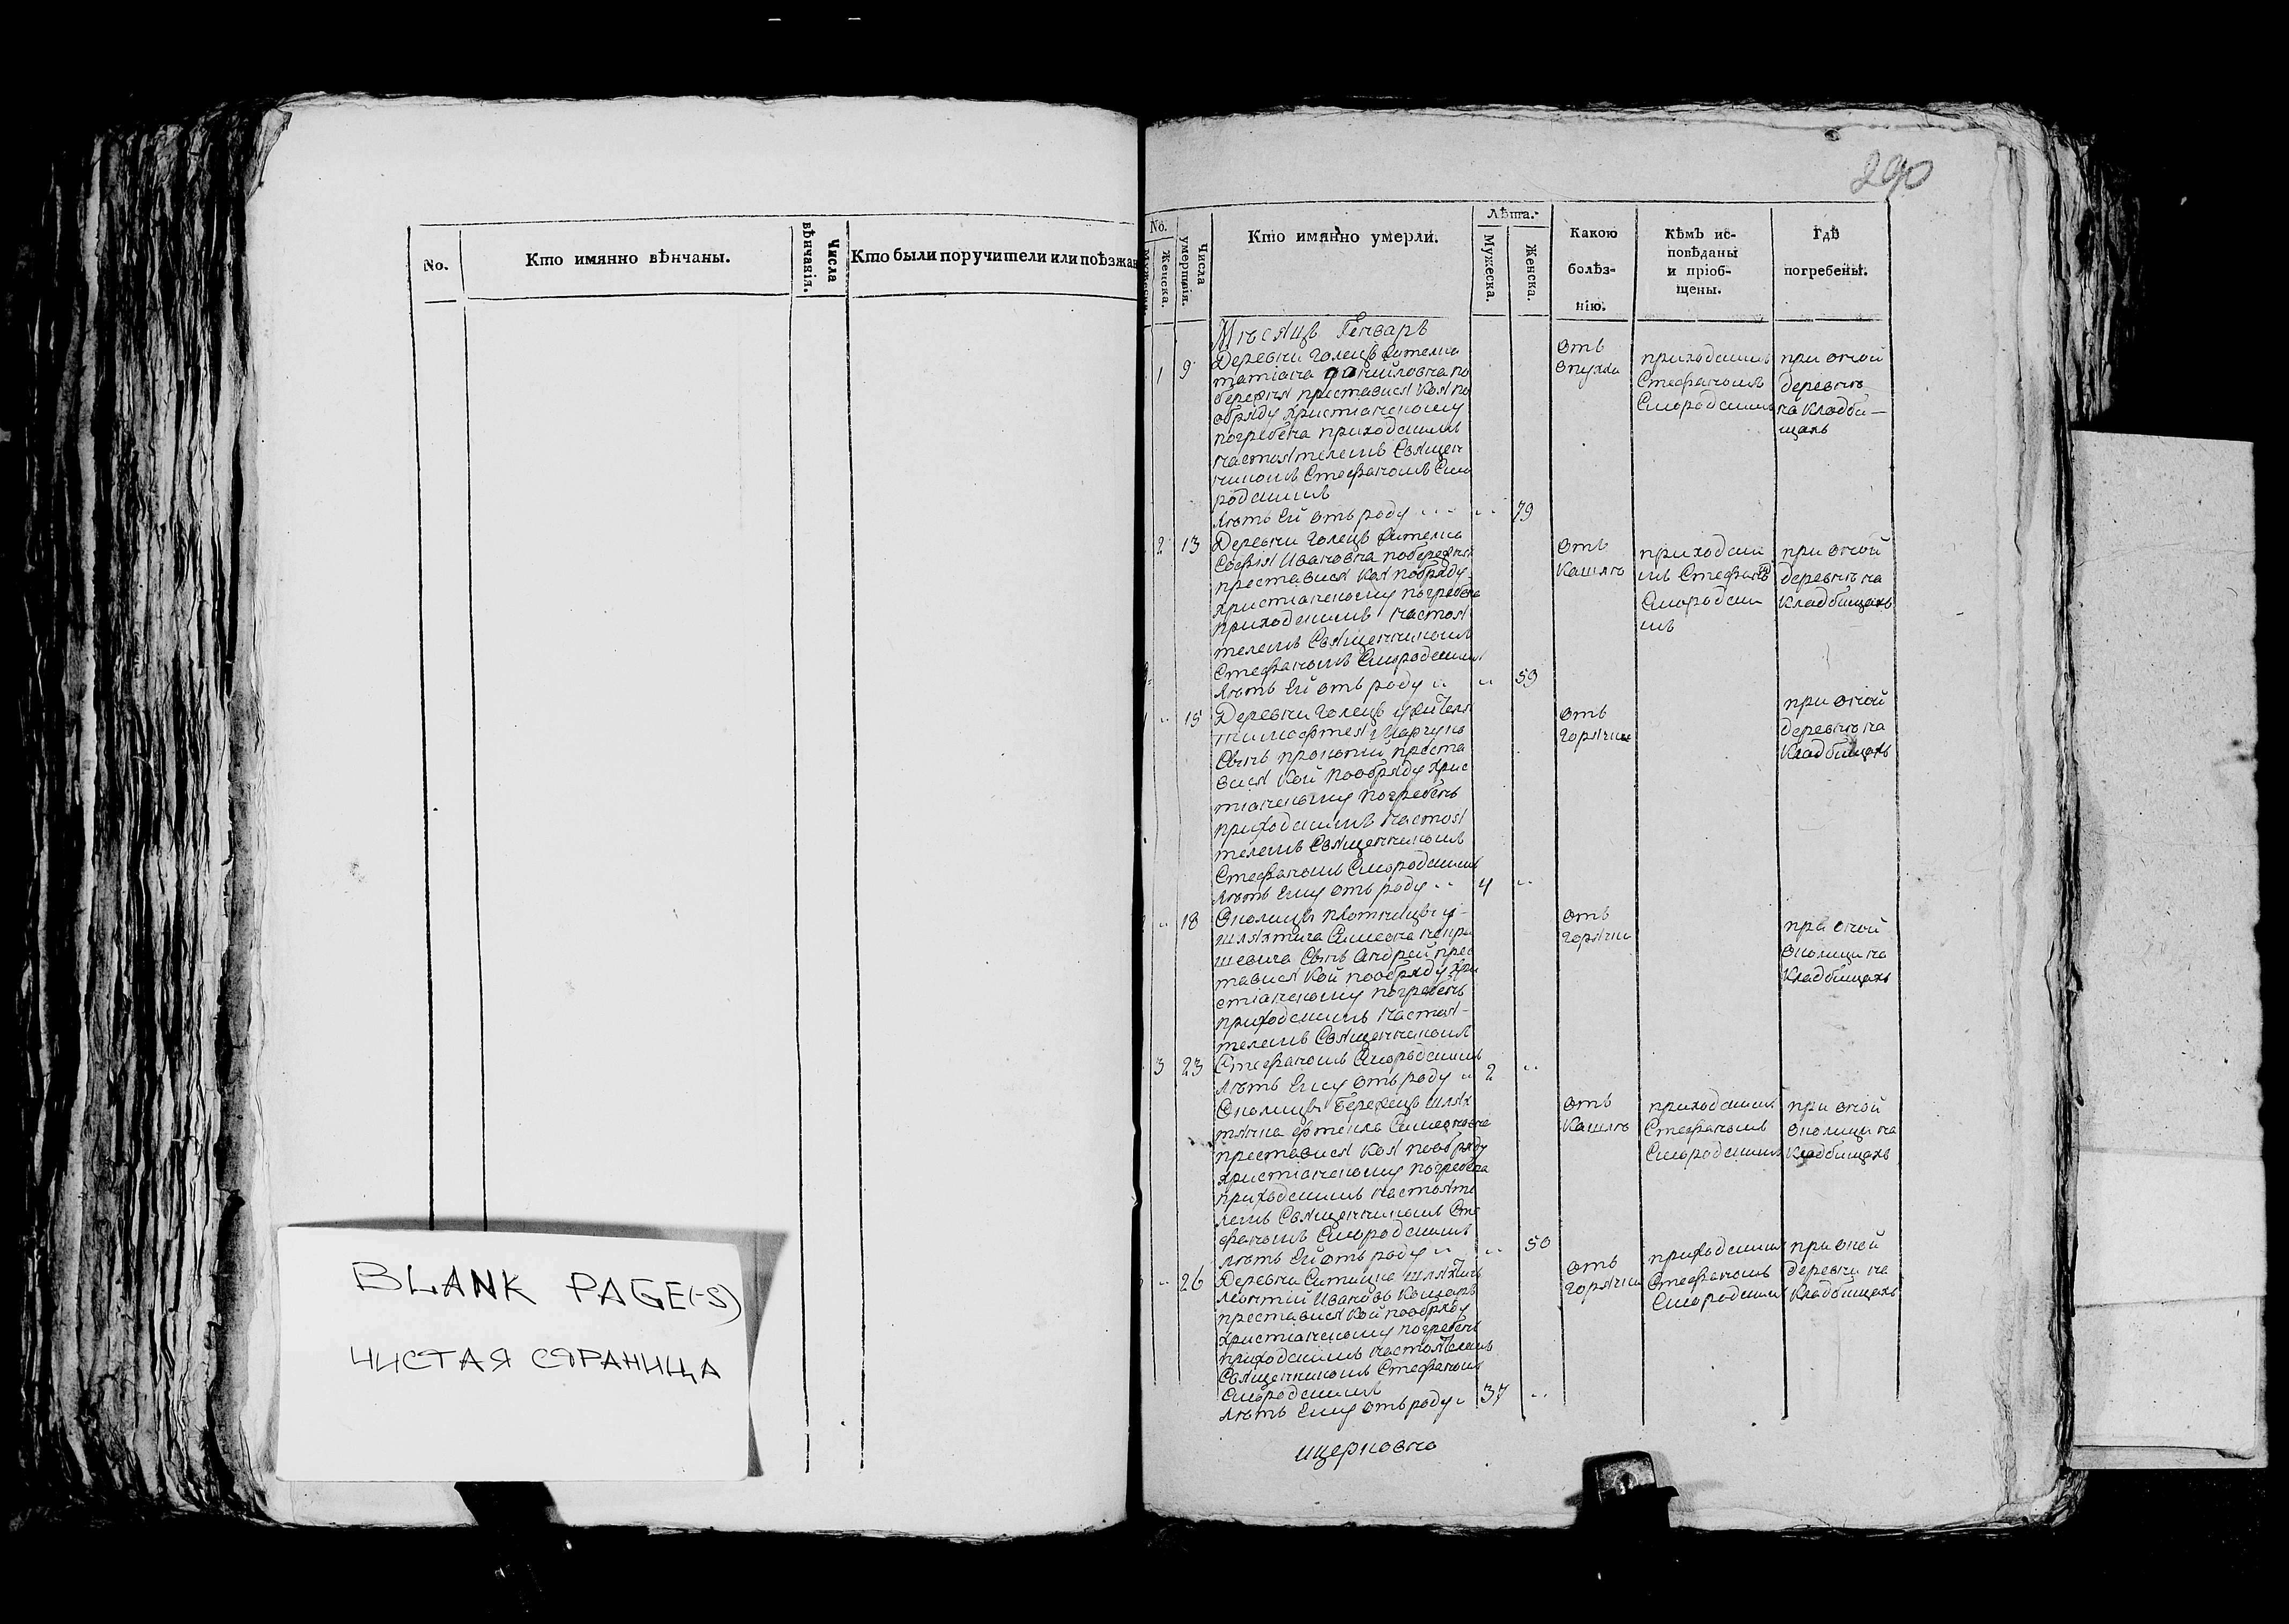 No.
Кто имянно вѣнчаны.
Числа вѣнчанія.
Кто были поручители или поѣзжан
BLANK PAGE(-S)
ЧИСТАЯ СТРАНИЦА
290
No.
Женска.
Числа умершія.
Кто имянно умерли.
Лѣта.
Мужеска.
Женска.
Какою болѣз-
нію.
Кѣмъ ис-
повѣданы
и пріоб-
щены.
Гдѣ
погребены.
Мѣсяцъ Генварь
1 9 Деревни Голецъ жителка
татіана данииловна по
бережня преставися коя по
обряду христіанскому
погребена приходскимъ
настоятелемъ Священ
никомъ Стефаномъ Смо
родскимъ
лѣтъ Ей отъ роду 79
отъ
опухла
приходскимъ
Стефаномъ
Смородскимъ
при оной
деревнѣ
на кладби—
щахъ
2 13 Деревни Голецъ жителка
Софія Ивановна побережня
преставися коя пообряду
христіанскому погребена
приходскимъ настоя
телемъ Священникомъ
Стефаномъ Смородскимъ
лѣтъ Ей отъ роду 59
отъ
кашлѣ
приходски
мъ Стефано
Смородски
мъ
при оной
деревнѣ на
кладбищахъ
15 Деревни Голецъ у жителя
Сынъ прокопий преста
вися кой пообряду хрис
тіанскому погребенъ
приходскимъ настоя
телемъ Священникомъ
Стефаномъ Смородскимъ
лѣтъ Ему отъ роду 4
отъ
горячки
при оной
деревнѣ на
кладбищахъ
18 Околицы плотницы у
шляхтича Симеона
Сынъ Андрей прес
тавися кой пообряду хри
стіанскому погребенъ
приходскимъ настоя-
телемъ Священникомъ
3 23 Стефаномъ Смородскимъ
лѣтъ Ему отъ роду 2
отъ
горячки
при оной
околици на
кладбищахъ
Околицы Бережецъ шлях
тянка фтекла Симеоновна
преставися коя пообряду
христіанскому погребена
приходскимъ настояте
лемъ Священникомъ Сте
фаномъ Смородскимъ
лѣтъ Ей отъ роду 50
отъ
кашлѣ
приходскимъ
Стефаномъ
Смородскимъ
при оной
околици на
кладбищахъ
26 Деревни Ситицка шляхтичъ
леонтий Ивановъ
преставися кой пообряду
христіанскому погребенъ
приходскимъ настоятелемъ
Священникомъ Стефаномъ
Смородскимъ
лѣтъ Ему отъ роду 37
отъ
горячки
приходскимъ
Стефаномъ
Смородскимъ
при оней
деревни на
кладбищахъ